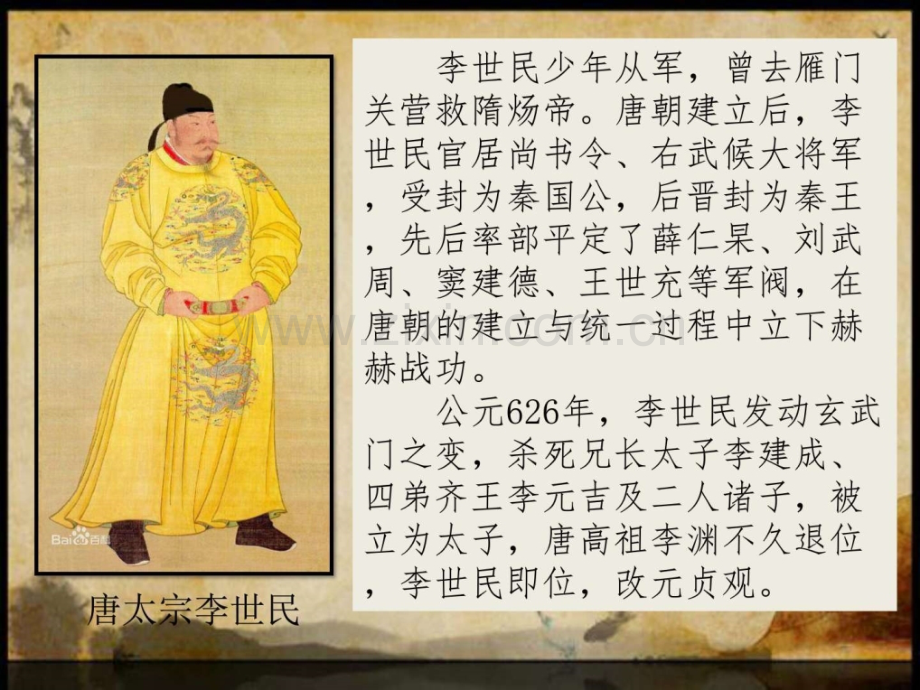 李世民少年从军，曾去雁门
关营救隋炀帝。唐朝建立后，李
世民官居尚书令、右武候大将军
，受封为秦国公，后晋封为秦王
，先后率部平定了薛仁杲、刘武
周、窦建德、王世充等军阀，在
唐朝的建立与统一过程中立下赫
赫战功。
公元626年，李世民发动玄武
门之变，杀死兄长太子李建成、
四弟齐王李元吉及二人诸子，被
立为太子，唐高祖李渊不久退位
，李世民即位，改元贞观。
Bai百科
唐太宗李世民
www.zixin.com.cn